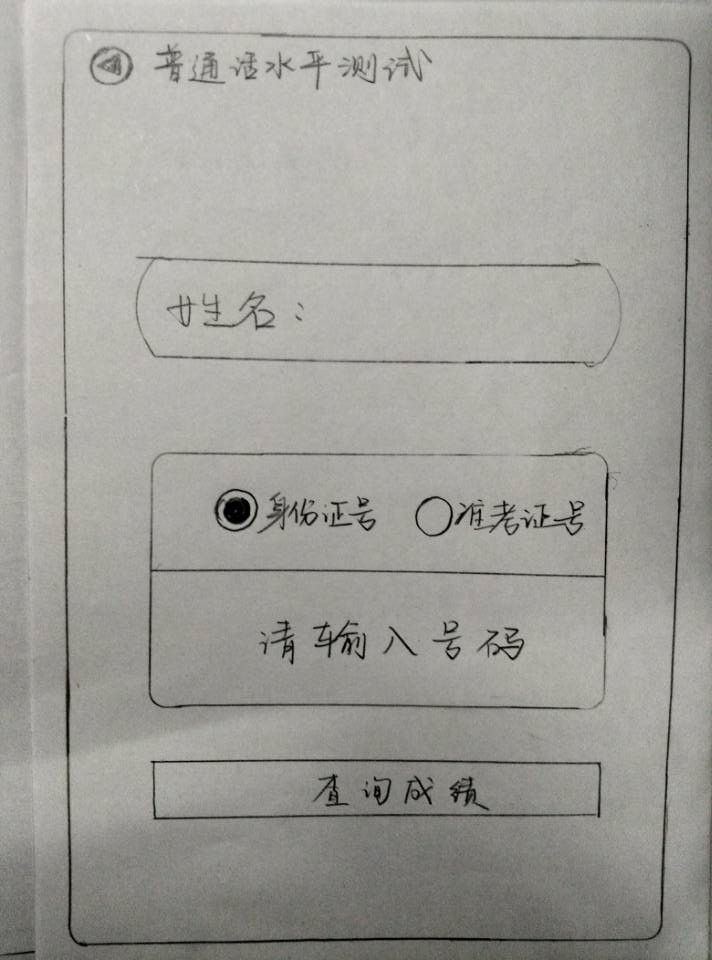 普通话水平测试
姓名：
身份证号 准考证号
请输入号码
查询成绩